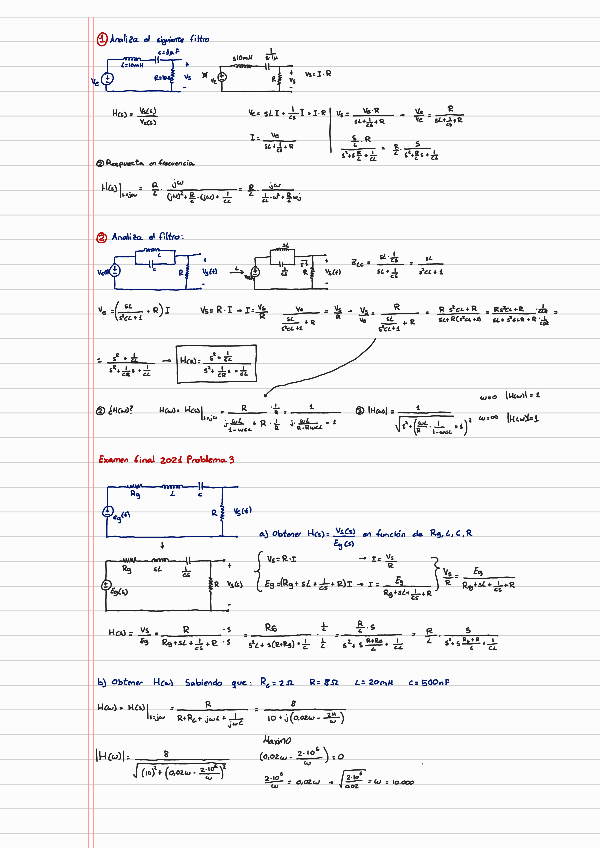 ① Analiza el siguiente filtro
C=1μF
L=10mH
Ve
Vs
s10mH
Ve
Vs
Vs = I·R
H(s) = Vs(s)/Ve(s)
Ve = sL I + 1/Cs I + I·R
Vs = Ve·R/(sL+1/Cs+R) → Vs/Ve = R/(sL+1/Cs+R)
I = Ve/(sL+1/Cs+R)
s/L·R/(s²+s R/L+1/CL) = R/L · s/(s²+R/L s+1/CL)
② Respuesta en frecuencia
H(s)|s=jω = R/L · jω/((jω)²+R/L·(jω)+1/CL) = R/L · jω/(1/CL-ω²+R/L ωj)
② Analiza el filtro:
L
C
R
Vs(t)
sL
1/Cs
R
Vs(t)
ZLC = sL·1/Cs/(sL+1/Cs) = sL/(s²CL+1)
Ve = (sL/(s²CL+1) + R) I
Vs = R·I → I = Vs/R
Ve/(sL/(s²CL+1)+R) = Vs/R → Vs/Ve = R/(sL/(s²CL+1)+R)
= (s²+1/CL)/(s²+1/CR s+1/CL) → H(s) = (s²+1/CL)/(s²+1/CR s+1/CL)
② ¿H(ω)?
H(ω) = H(s)|s=jω
③ |H(ω)| =
ω=0 |H(ω)|=1
ω=∞ |H(ω)|=1
Examen final 2021 Problema 3
Rg L C
eg(t)
R
Vs(t)
a) Obtener H(s) = Vs(s)/Eg(s) en función de Rg, L, C, R
Rg sL 1/Cs
Eg(s)
R
Vs(s)
Vs = R·I → I = Vs/R
Eg = (Rg + sL + 1/Cs + R) I → I = Eg/(Rg+sL+1/Cs+R)
Vs/R = Eg/(Rg+sL+1/Cs+R)
H(s) = Vs/Eg = R/(Rg+sL+1/Cs+R) · s/s = Rs/(s²L+s(R+Rg)+1/C) · 1/L / 1/L = R/L·s/(s²+s (R+Rg)/L+1/CL) = R/L · s/(s²+s (Rg+R)/L+1/CL)
b) Obtener H(ω) Sabiendo que: RG = 2Ω R = 8Ω L = 20mH C = 500nF
H(ω) = H(s)|s=jω = R/(R+RG+jωL+1/jωC) = 8/(10+j(0,02ω-2M/ω))
Máximo
|H(ω)| = 8/√((10)²+(0,02ω-2·10⁶/ω)²)
(0,02ω - 2·10⁶/ω) = 0
2·10⁶/ω = 0,02ω → √(2·10⁶/0,02) = ω = 10.000